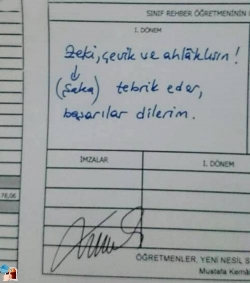 SINIF REHBER ÖĞRETMENİNİN
I. DÖNEM
Zeki, çevik ve ahlâklısın!
(Şaka) tebrik eder,
başarılar dilerim.
İMZALAR
I. DÖNEM
76,06
ÖĞRETMENLER, YENİ NESİL S
Mustafa Kema